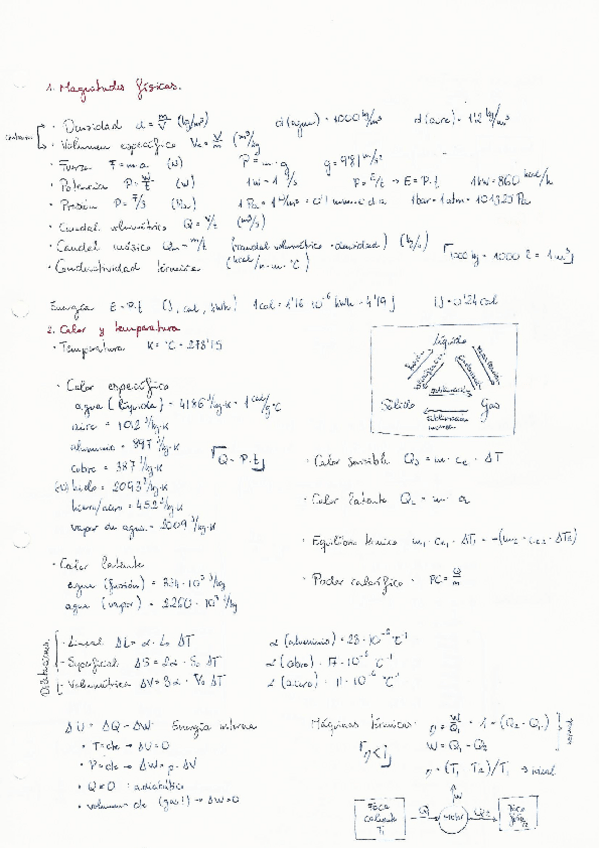 1. Magnitudes físicas.
· Densidad d = m/V (kg/m³) d(agua) = 1000 kg/m³ d(aire) = 1'2 kg/m³
· Volumen específico Ve = V/m (m³/kg)
· Fuerza F = m·a (N) P = m·g g = 9'81 m/s²
· Potencia P = W/t (W) 1W = 1 J/s P = E/t → E = P·t 1kW = 860 kcal/h
· Presión P = F/S (Pa) 1 Pa = 1 N/m² 1bar = 1atm = 101325 Pa
· Caudal volumétrico Q = V/t (m³/s)
· Caudal másico Qm = m/t (caudal volumétrico · densidad) (kg/s)
1000 kg = 1000 l = 1 m³
· Conductividad térmica (kcal/h·m·°C)
Energía E = P·t (J, cal, kWh) 1cal = 1'16·10⁻⁶ kWh = 4'19 J 1J = 0'24 cal
2. Calor y temperatura
· Temperatura K = °C + 273'15
Líquido
Sólido Gas
· Calor específico
agua (líquida) = 4186 J/kg·K = 1 cal/g°C
aire = 1012 J/kg·K
aluminio = 897 J/kg·K
cobre = 387 J/kg·K
hielo = 2093 J/kg·K
hierro/acero = 452 J/kg·K
vapor de agua = 2009 J/kg·K
Q = P·t
· Calor sensible Qs = m · ce · ΔT
· Calor latente QL = m · a
· Equilibrio térmico m₁ · ce₁ · ΔT₁ = -(m₂ · ce₂ · ΔT₂)
· Poder calorífico PC = Q/m
· Calor latente
agua (fusión) = 334 · 10³ J/kg
agua (vapor) = 2260 · 10³ J/kg
Dilataciones
- Lineal ΔL = α · L₀ ΔT α (aluminio) = 23 · 10⁻⁶ °C⁻¹
- Superficial ΔS = 2α · S₀ ΔT α (cobre) = 17 · 10⁻⁶ °C⁻¹
- Volumétrica ΔV = 3α · V₀ ΔT α (acero) = 11 · 10⁻⁶ °C⁻¹
ΔU = ΔQ - ΔW Energía interna
· T = cte → ΔU = 0
· P = cte → ΔW = p · ΔV
· Q = 0 : adiabático
· volumen cte (gas!) → ΔW = 0
Máquinas térmicas:
W = Q₁ - Q₂
η < 1
→ ideal
Foco caliente T₁
Q₁
motor
W
Q₂
Foco frío T₂